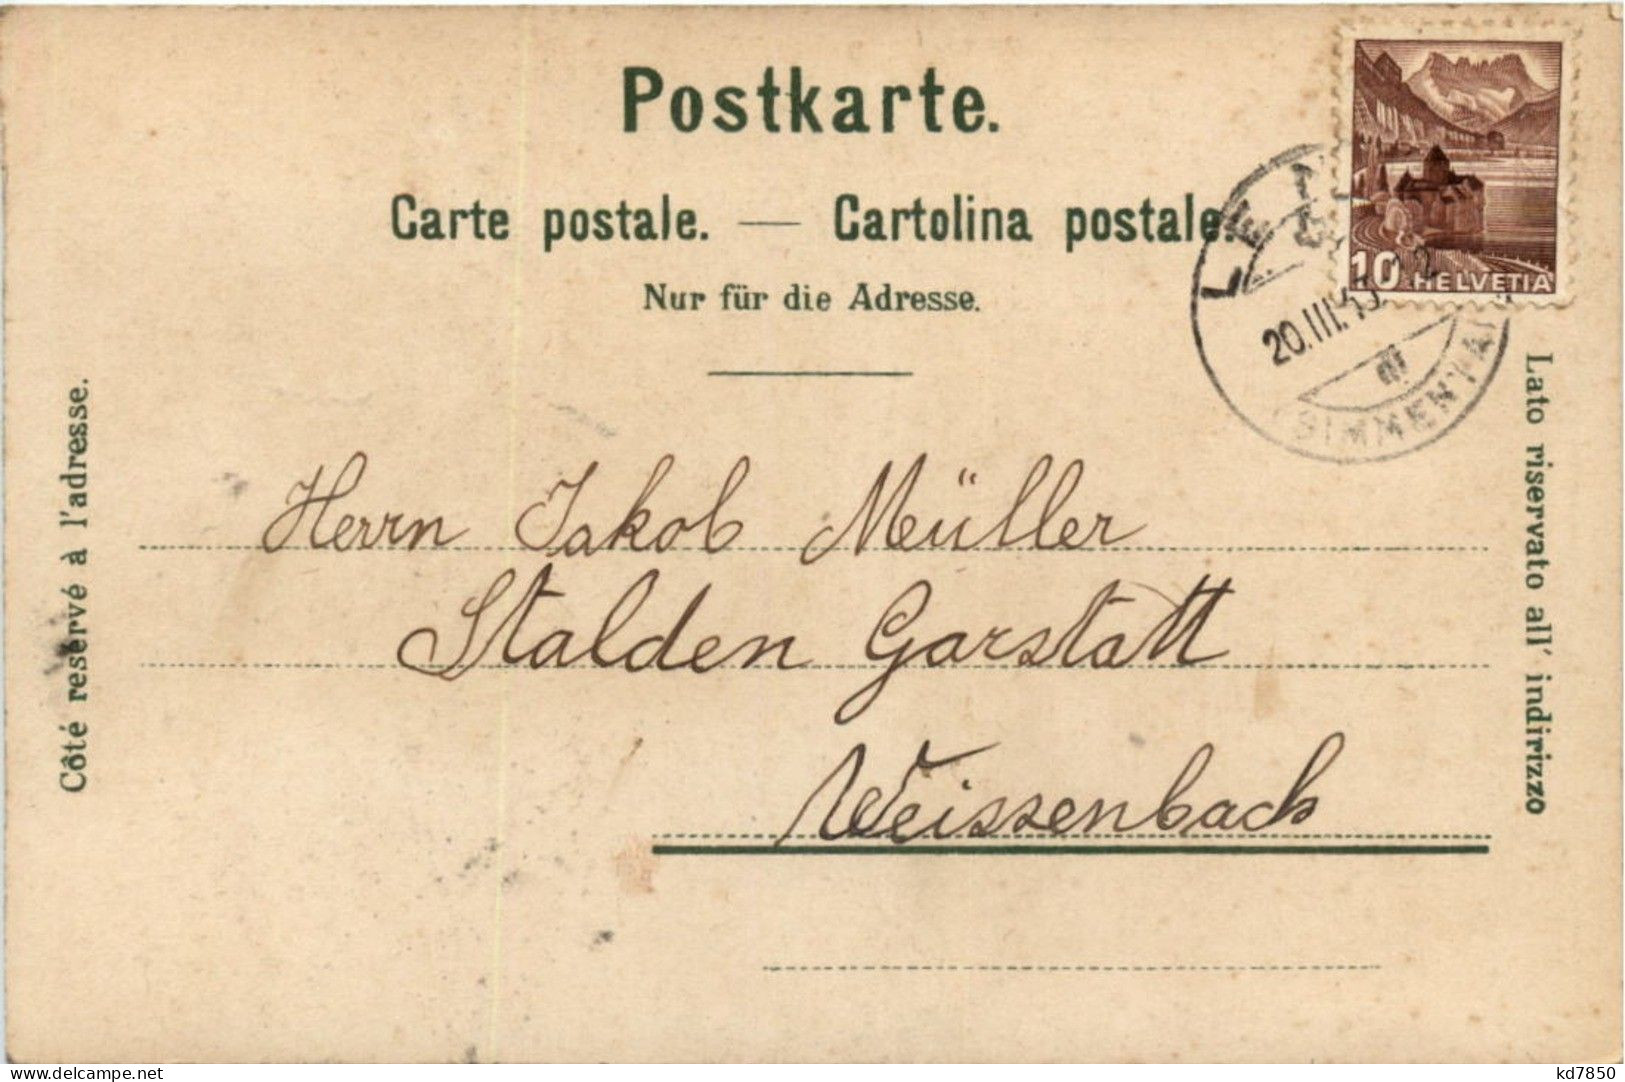 Postkarte.
Carte postale. — Cartolina postale.
Nur für die Adresse.
10 HELVETIA
LENK
20.III.
(SIMMENTHAL)
Côté reservé à l'adresse.
Lato riservato all' indirizzo
Herrn Jakob Müller
Stalden Garstatt
Weissenbach
delcampe.net
kd7850